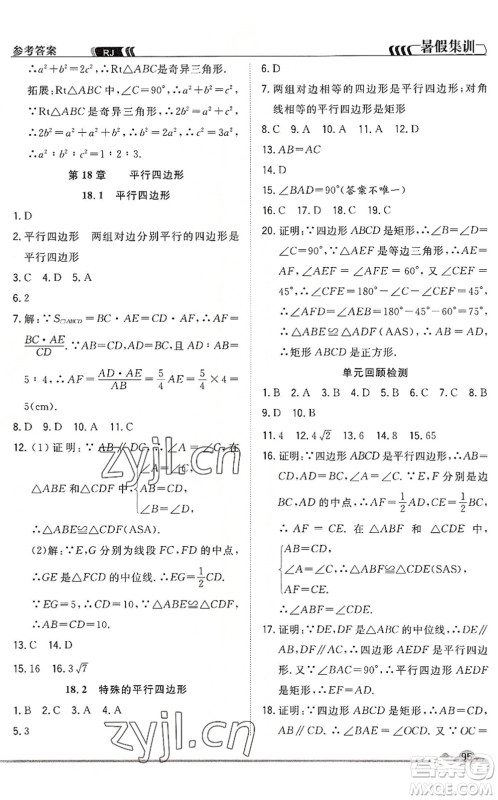 参考答案
RJ
暑假集训
∴a²+b²=2c²,∴Rt△ABC是奇异三角形.
拓展:∵Rt△ABC,∠C=90°,∴a²+b²=c².
∵Rt△ABC是奇异三角形,∴a²+c²=2b²,
∴2b²=a²+a²+b²,∴b²=2a²,∴c²=3a²,
∴a²∶b²∶c²=1∶2∶3.
第18章 平行四边形
18.1 平行四边形
1. D
2. 平行四边形 两组对边分别平行的四边形是
平行四边形
3. C 4. D 5. A
6. 2
7. 解:∵S▱ABCD=BC·AE=CD·AF,∴AF=
BC·AE/CD.∵在▱ABCD中,BC=AD,∴AD∶AB=
5∶4,∴AF=AD·AE/AB=5/4 AE=5/4×4=
5(cm).
8. D 9. D 10. A 11. C
12. (1)证明:∵AB∥DC,∴∠A=∠C,在
△ABE和△CDF中,{∠A=∠C, AB=CD, ∠B=∠D,
∴△ABE≌△CDF(ASA).
(2)解:∵E,G分别为线段FC,FD的中点,
∴GE是△FCD的中位线,∴EG=1/2 CD.
∵EG=5,∴CD=10,∴AB=CD=10.
13. C 14. D
15. 16 16. 3√7
18.2 特殊的平行四边形
1. B 2. C 3. A 4. A
5. 3
6. D
7. 两组对边相等的四边形是平行四边形;对角
线相等的平行四边形是矩形
8. C 9. A 10. C 11. A 12. D
13. AB=AC
14. D 15. D 16. D 17. A 18. C
19. ∠BAD=90°(答案不唯一)
20. 证明:∵四边形ABCD是矩形,∴∠B=∠D=
∠C=90°.∵△AEF是等边三角形,∴AE=
AF,∠AEF=∠AFE=60°,又∠CEF=
45°,∴∠CFE=180°-∠C-∠CEF=
45°,∴∠AFD=∠AEB=180°-45°-60°=
75°,∴△AEB≌△AFD(AAS),∴AB=AD,
∴矩形ABCD是正方形.
单元回顾检测
1. A 2. B 3. B 4. C 5. A 6. D 7. A 8. C
9. D 10. B
11. 4 12. 4√2 13. 2 14. 15 15. 65
16. 证明:∵四边形ABCD是平行四边形,∴∠A=
∠C,AB=CD,AD=BC.又∵E,F分别是边
BC,AD的中点,∴AF=1/2 AD,CE=1/2 BC,
∴AF=CE.在△ABF和△CDE中,
{AB=CD, ∠A=∠C, AF=CE,∴△ABF≌△CDE(SAS),
∴∠ABF=∠CDE.
17. 证明:∵DE,DF是△ABC的中位线,∴DE∥
AB,DF∥AC,∴四边形AEDF是平行四边
形.又∵∠BAC=90°,∴平行四边形AEDF
是矩形.
18. 证明:∵四边形ABCD是菱形,∴OB=
OD.∵DH⊥AB,∴OH=OB.又∵OC=
zyjl.cn
zyjl.cn
95